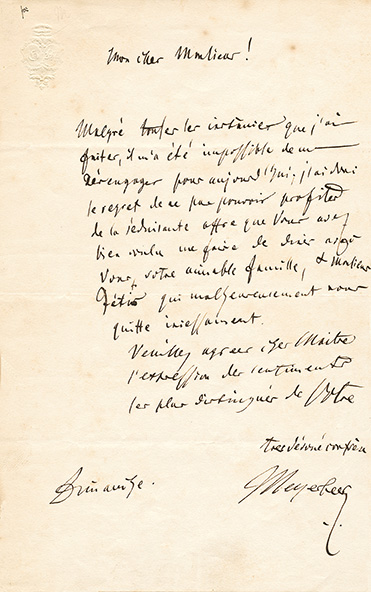 Mon cher Monsieur!
Malgré toutes les instances que j'ai
faites, il m'a été impossible de me
dégager pour aujourd'hui; j'ai donc
le regret de ne pas pouvoir profiter
de la séduisante offre que Vous avez
bien voulu me faire de diner avec
Vous, votre aimable famille, & Monsieur
Fétis qui malheureusement nous
quitte incessament.
Veuillez agréer cher Maitre
l'expression des sentiments
les plus distingués de Votre
tres dévoué confrère
Meyerbeer
Dimanche.